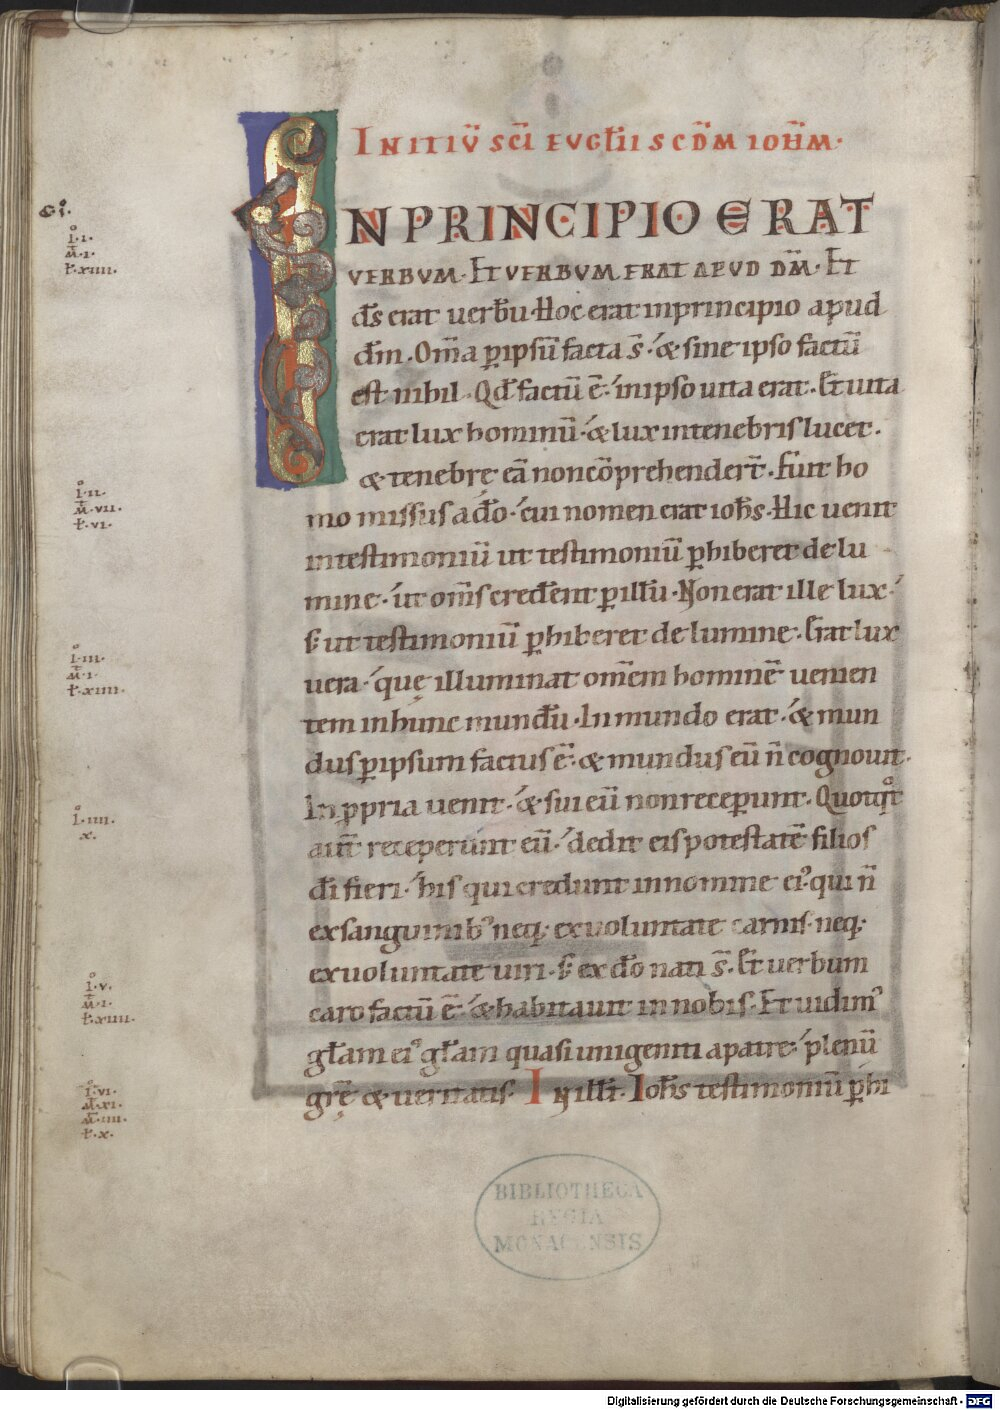 INITIŪ SC̄I EVGĒLII SCDM̄ IOH̄M·
IN PRINCIPIO ERAT
VERBVM· ET VERBVM ERAT APVD DM̄· ET
ds̄ erat uerbū· Hoc erat inprincipio apud
dm̄· Om̄a p̱ ipsū facta s̄· & sine ipso factū
est nihil· Qd̄ factū ē· inipso uita erat· Et uita
erat lux hominū· & lux intenebris lucet·
& tenebrę eā noncōprehender̄t· Fuit ho
mo missus ado̅· cui nomen erat ioh̄s· Hic uenit
intestimoniū ut testimoniū p̱hiberet de lu
mine· ut om̄s crederent p̱ illū· Non erat ille lux·
s; ut testimoniū p̱hiberet de lumine· Erat lux
uera· quę illuminat om̄em hominē uenien
tem inhunc mundū· In mundo erat· & mun
dus p̱ ipsum factus ē· & mundus eū n̄ cognouit·
In p̱pria uenit· & sui eū nonreceperunt· Quotqͦt
aut̄ receperunt eū· dedit eis potestatē filios
dī fieri· his qui credunt innomine ei᾽ qui n̄
exsanguinib᾽ neq; exuoluntate carnis· neq;
exuoluntate uiri· s; ex do̅ nati s̄· Et uerbum
caro factū ē· & habitauit in nobis· Et uidim᾽
gl̄am ei᾽ gl̄am quasi unigeniti apatre· plenū
gr̄ę & ueritatis· IN ill̄· Ioh̄s testimoniū p̱hi
I·I·
M·I·
L·XIIII·
I·II·
M·VII·
L·VI·
I·III·
M·I·
L·XIIII·
I·IIII·
X·
I·V·
M·I·
L·XIIII·
I·VI·
M·XI·
M·IIII·
L·X·
BIBLIOTHECA
REGIA
MONACENSIS
Digitalisierung gefördert durch die Deutsche Forschungsgemeinschaft - DFG